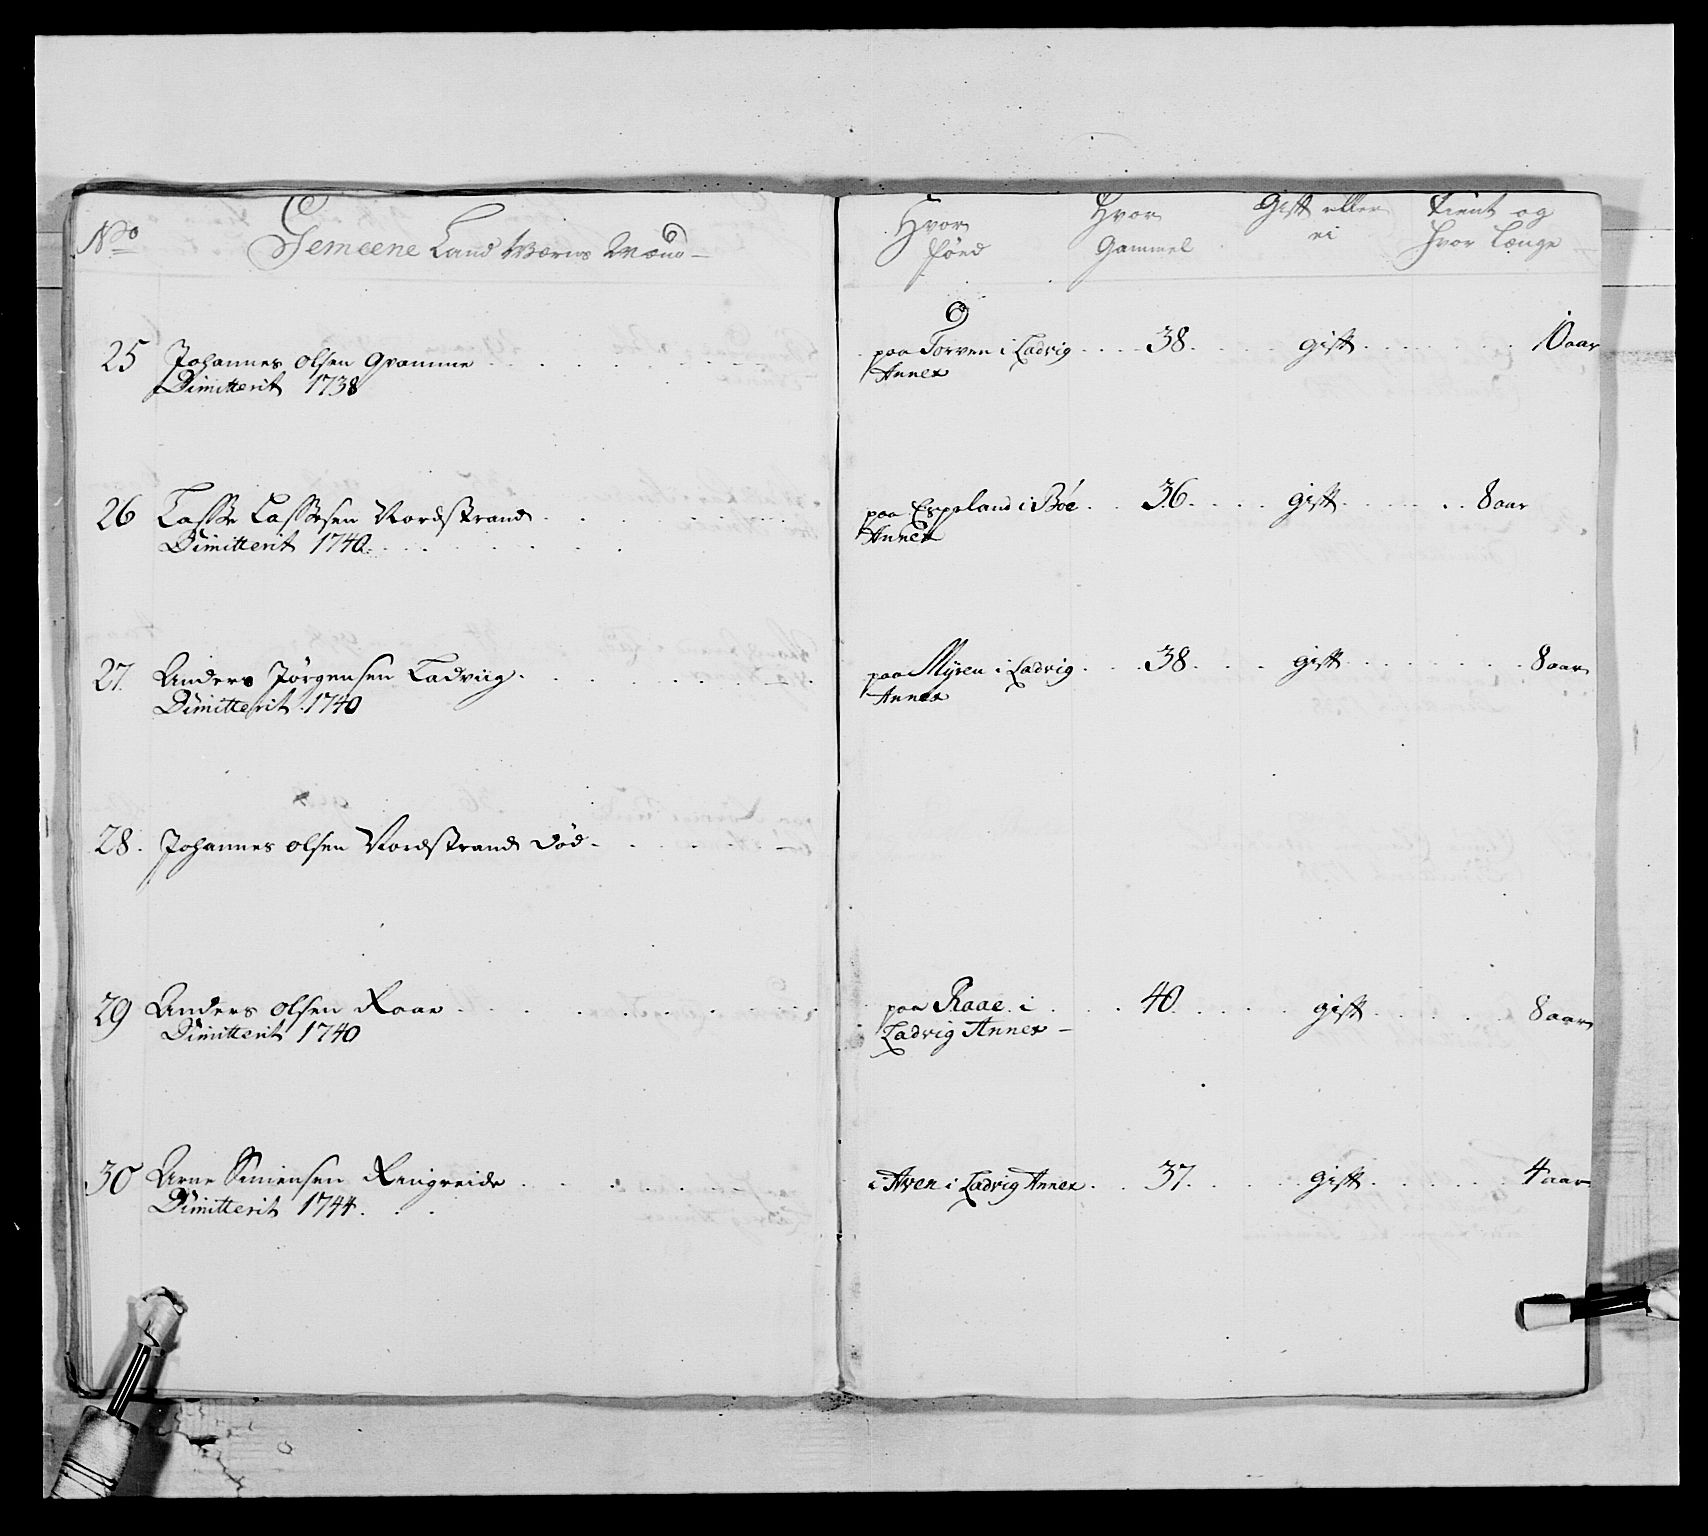 No
Gemeene Land Wærns Mænd
Hvor
föed
Hvor
Gammel
Gift eller
ei
tient og
hvor længe
25 Johannes olsen Gramme
Dimitterit 1738
paa Torven i Ladvig
Annex
38
gift
10 aar
26 Lasse Lassesen Nordstrand
Dimitterit 1740
paa Espeland i Böe
Annex
36
gift
8 aar
27 Anders Jørgensen Ladviig
Dimitterit 1740
paa Myren i Ladvig
Annex
38
gift
8 aar
28. Johannes olsen Nordstrand død
29 Anders olsen Raae
Dimitterit 1740
paa Raae i
Ladvig Annex
40
gift
8 aar
30 Arne Simensen Ringreide
Dimitterit 1744
i Aven i Ladvig Annex
37
gift
4 aar